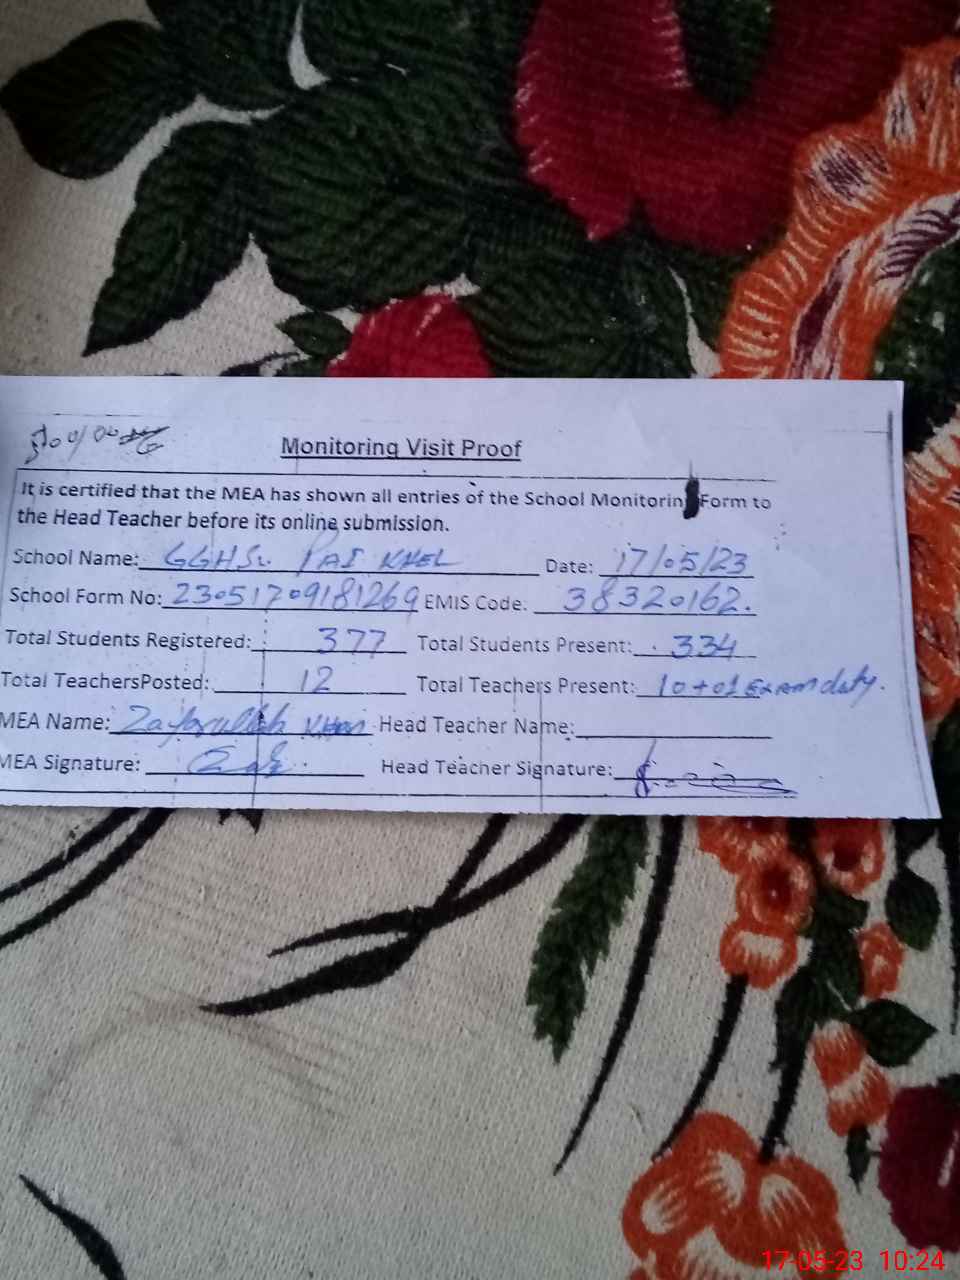 Monitoring Visit Proof
It is certified that the MEA has shown all entries of the School Monitorin Form to
the Head Teacher before its online submission.
School Name: GGHS PAI KHEL Date: 17/05/23
School Form No: 23051709181269 EMIS Code: 38320162.
Total Students Registered: 377 Total Students Present: 334
Total TeachersPosted: 12 Total Teachers Present: 10+01 Exam duty.
MEA Name: Zafarullah Khan Head Teacher Name:
MEA Signature: Head Teacher Signature:
17-05-23 10:24